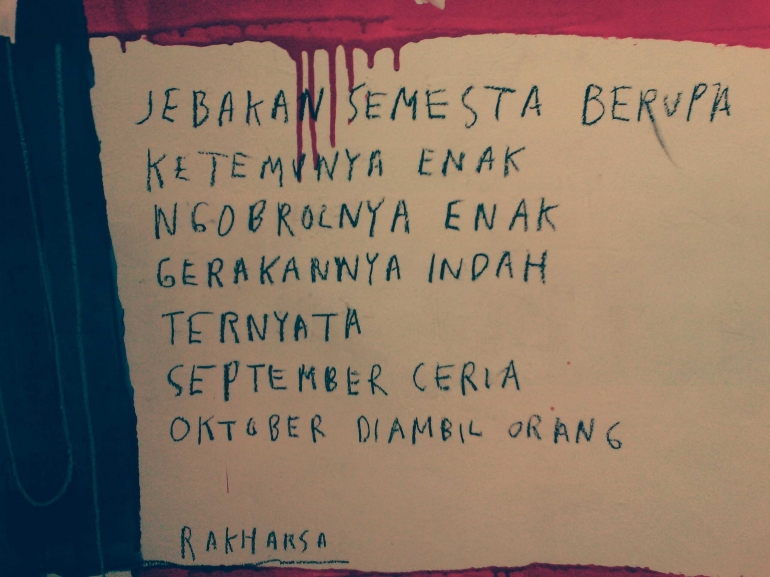 JEBAKAN SEMESTA BERUPA
KETEMUNYA ENAK
NGOBROLNYA ENAK
GERAKANNYA INDAH
TERNYATA
SEPTEMBER CERIA
OKTOBER DIAMBIL ORANG
RAKHARSA